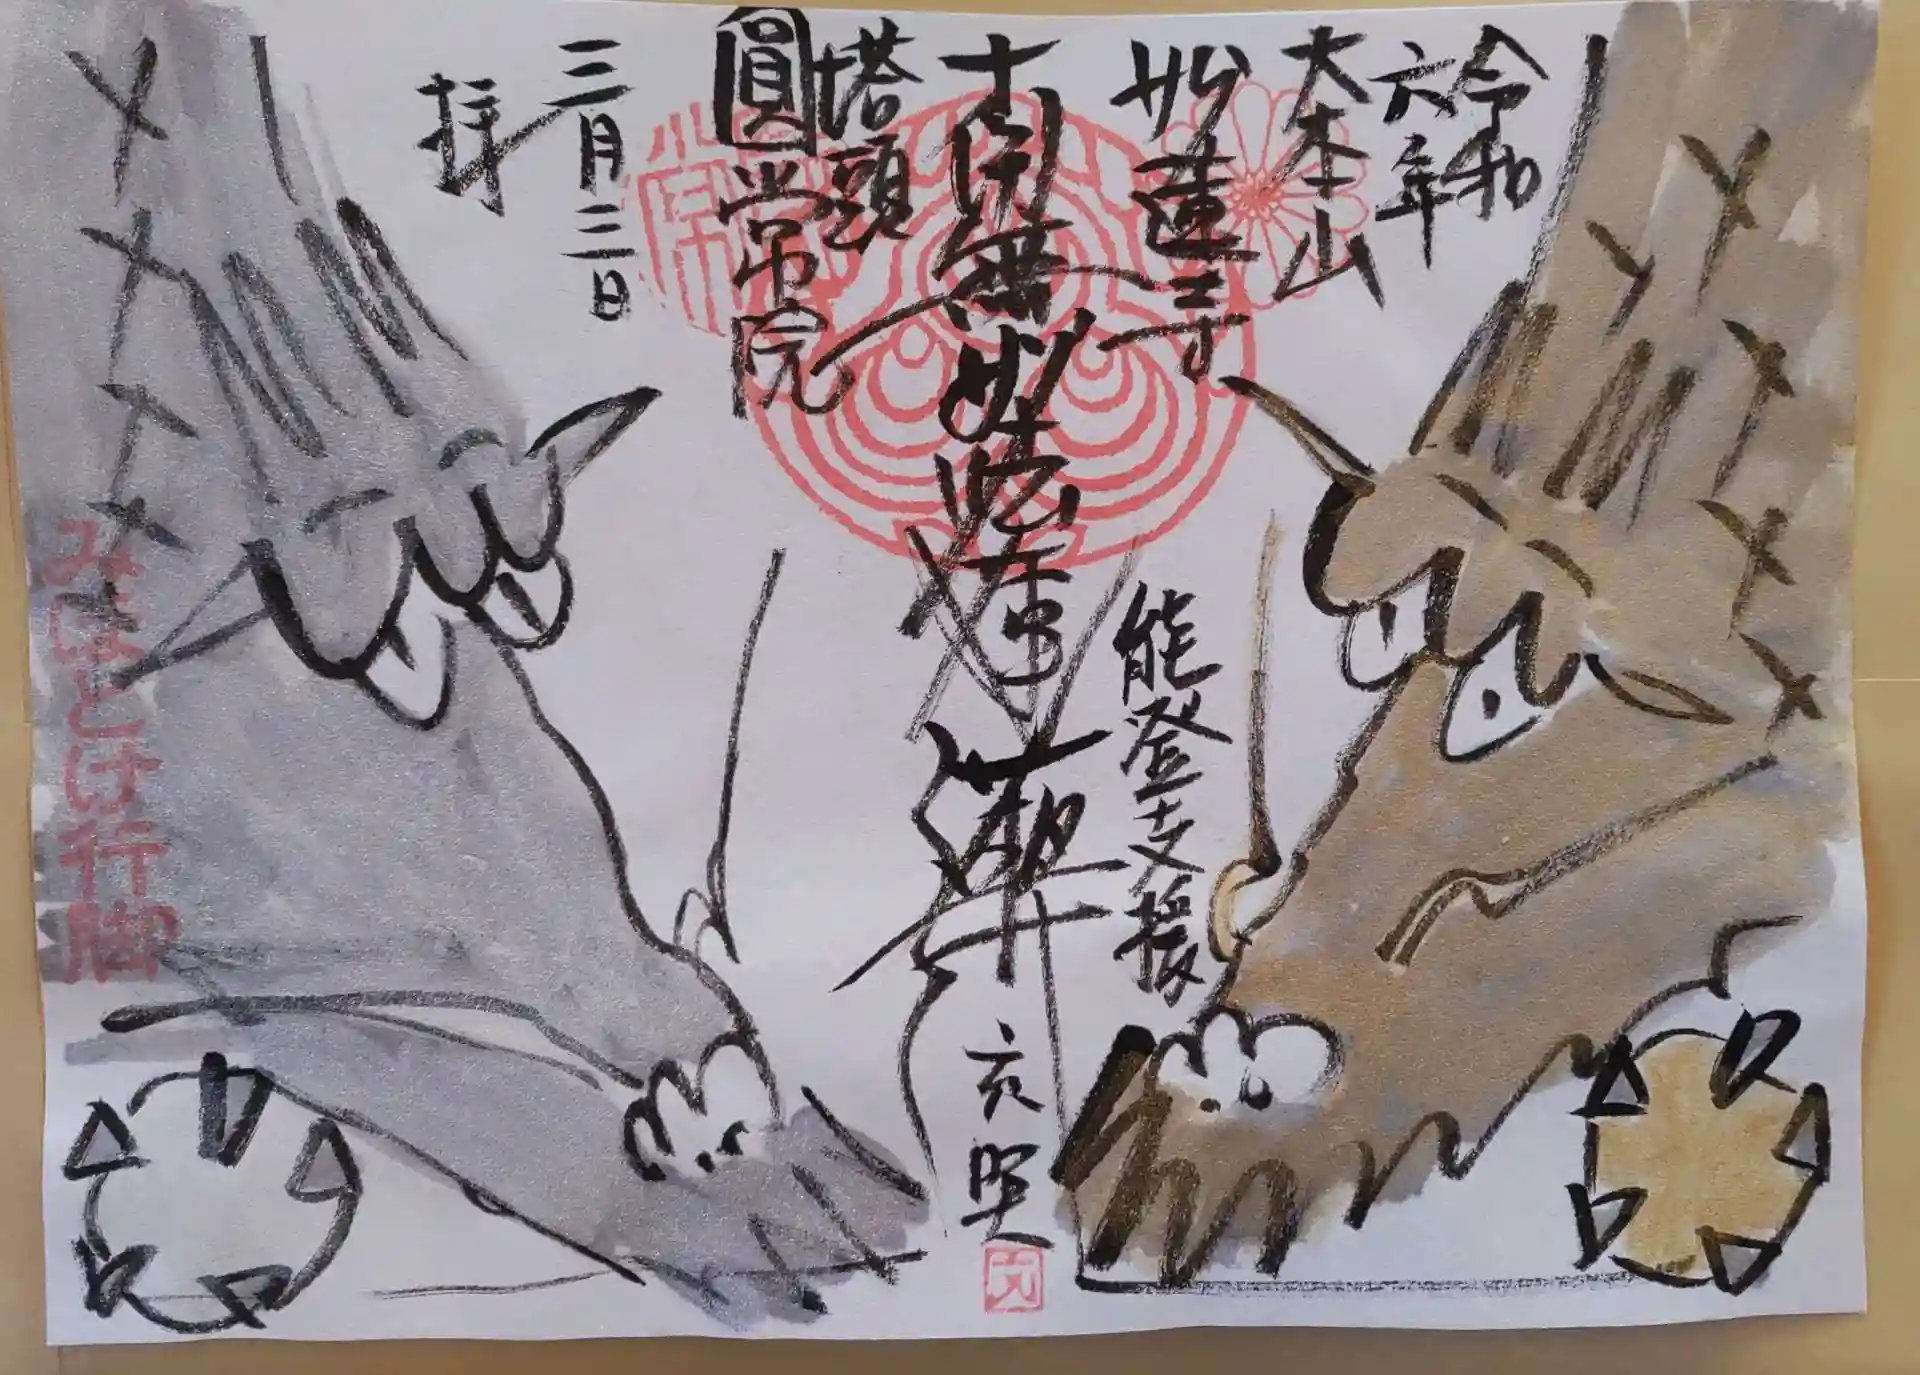 令和
六年
大本山
妙蓮寺
南無妙法蓮華
能登支援
塔頭
圓常院
三月三日
拝
みほとけ行脚